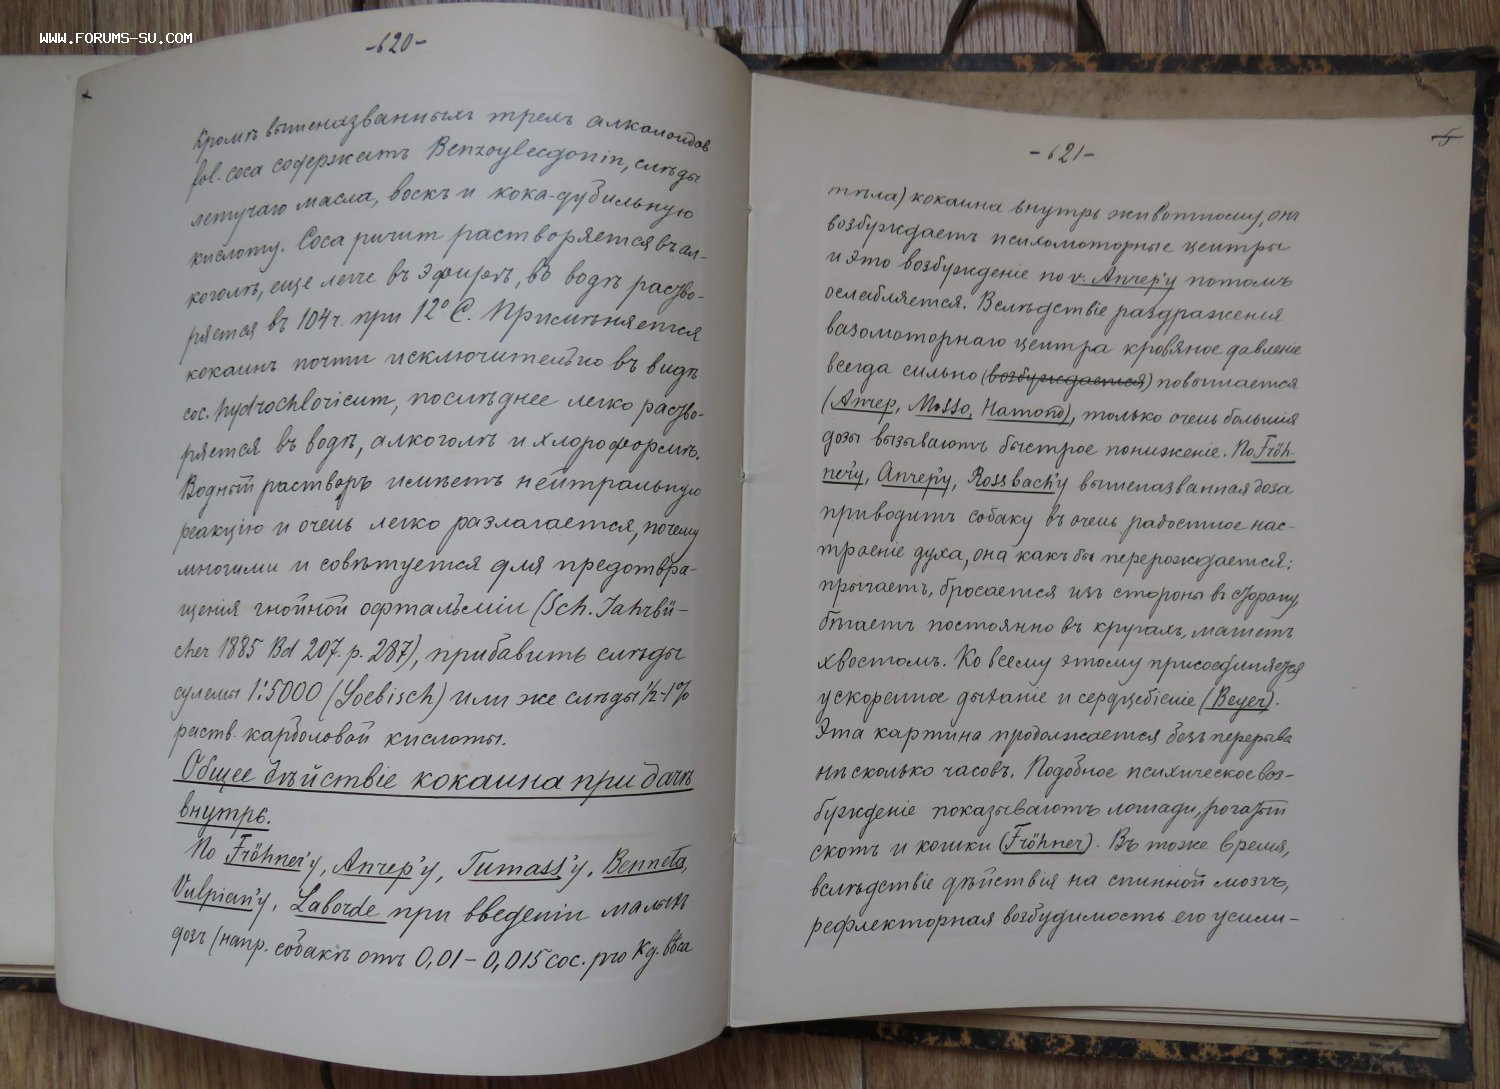 WWW.FORUMS-SU.COM
-620-
Кромѣ вышеназванныхъ трехъ алкалоидов
fol. coca содержатъ Benzoylecgonin, слѣды
летучаго масла, воскъ и кока-дубильную
кислоту. Coca ричит растворяется въ ал-
коголѣ, еще легче въ эфирѣ, въ водѣ раство-
ряется въ 104 ч. при 12° C. Примѣняется
кокаинъ почти исключительно въ видѣ
coc. hydrochloricum, послѣднее легко раство-
ряется въ водѣ, алкоголѣ и хлороформѣ.
Водный растворъ имѣетъ нейтральную
реакцію и очень легко разлагается, почему
многими и совѣтуется для предотвра-
щенія гнойной офтальміи (Sch. Jahrbü-
cher 1885 Bd 207. p. 287), прибавить слѣды
сулемы 1:5000 (Loebisch) или же слѣды ½-1%
раств. карболовой кислоты.
Общее дѣйствіе кокаина при дачѣ
внутрь.
По Fröhner'у, Анчер'у, Tumass'у, Benneta,
Vulpian'у, Laborde при введеніи малыхъ
дозъ (напр. собакѣ отъ 0,01 – 0,015 coc. pro Kg. вѣса
-621-
5
тѣла) кокаина внутрь животному, онъ
возбуждаетъ психомоторные центры
и это возбужденіе по v. Анчер'у потомъ
ослабляется. Вслѣдствіе раздраженія
вазомоторнаго центра кровяное давленіе
всегда сильно (возбуждается) повышается
(Анчер, Mosso, Hamond), только очень большія
дозы вызываютъ быстрое пониженіе. По Fröh-
ner'у, Анчер'у, Rossbach'у вышеназванная доза
приводитъ собаку въ очень радостное нас-
троеніе духа, она какъ бы перерождается:
прыгаетъ, бросается изъ стороны въ сторону,
бѣгаетъ постоянно въ кругахъ, машетъ
хвостомъ. Ко всему этому присоединяется
ускоренное дыханіе и сердцебіеніе (Beyer).
Эта картина продолжается безъ перерыва
нѣсколько часовъ. Подобное психическое воз-
бужденіе показываютъ лошади, рогатый
скотъ и кошки (Fröhner). Въ тоже время,
вслѣдствіе дѣйствія на спинной мозгъ,
рефлекторная возбудимость его усили-